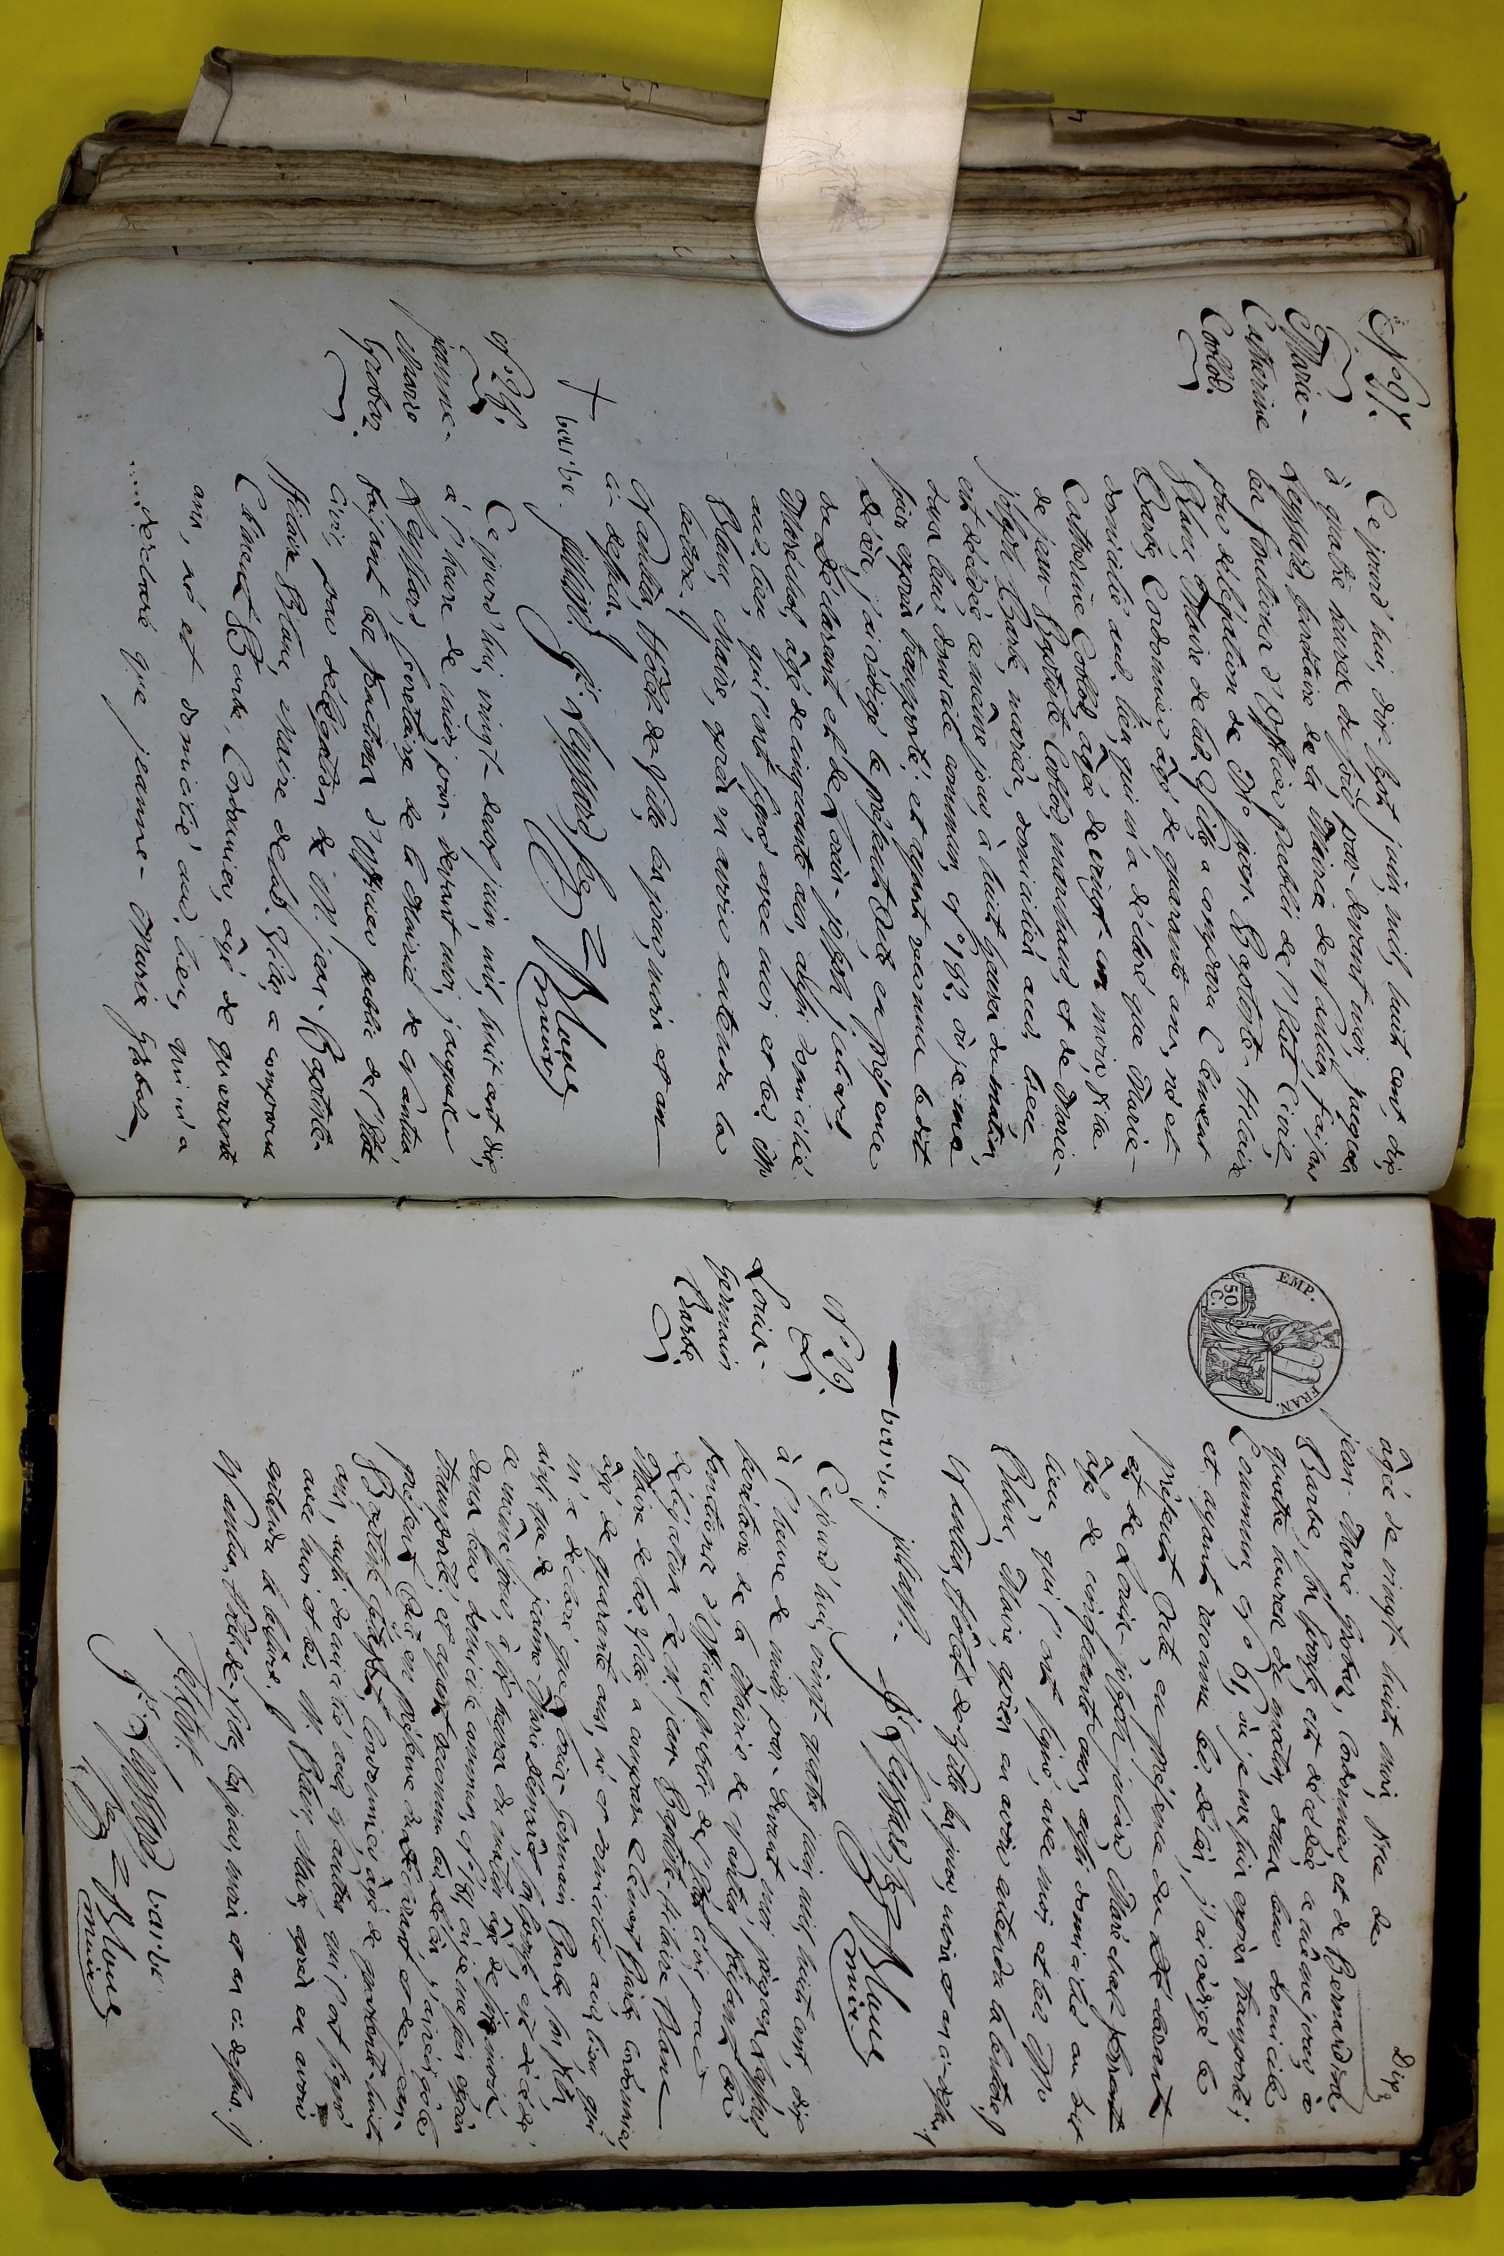 N.° 27.
Marie-
Catherine
Collod.
Ce jourd'hui, dix sept juin, mil huit cent dix
à quatre heures du soir, par-devant moi, Jacques
Reyssard, secrétaire de la Mairie de Nantua, faisant
les fonctions d'officier public de l'état Civil,
par délégation de Mr. jean Baptiste-Hilaire
Blanc, Maire de lad. Ville a comparu Clement
Barbe, Cordonnier âgé de quarante ans, né et
domicilié aud. lieu, qui m'a déclaré que Marie-
Catherine Collod, âgée de vingt un mois, fille
de jean-Baptiste Collod, marchand, et de Marie-
joseph Barbe, mariés, domiciliés aud. lieu
est décédée ce même jour, à huit heures du matin,
dans leur domicile commun, N.° 182, où je me
suis exprès transporté; et ayant reconnu ledit
décès, j'ai rédigé le présent acte, en présence
du déclarant et de Louis-joseph juliard,
Maréchal, âgé de cinquante ans, aussi domicilié
aud. lieu, qui l'ont signé avec moi et led. Mr.
Blanc, Maire, après en avoir entendu la
lecture.
Nantua, Hôtel de Ville les jour, mois et an
ci dessus.
barbe. juliard. Js. Reyssard, sre. Blanc
maire
N.° 28.
jeanne-
Marie
Grobas.
Ce jourd'hui, vingt-deux juin, mil huit cent dix,
à l'heure de midi, par-devant moi, jacques
Reyssard, secrétaire de la Mairie de Nantua,
faisant les fonctions d'officier public de l'état
civil, par délégation de M. jean-Baptiste-
Hilaire Blanc, Maire de lad. Ville, a comparu
Clément Barbe, Cordonnier, âgé de quarante
ans, né et domicilié aud. lieu, qui m'a
déclaré que jeanne-Marie Grobas,
Dix
âgée de vingt huit mois, fille de
jean Marie Grobas, Cordonnier et de Bernardine
Barbe, son épouse, est décédée ce même jour, à
quatre heures du matin, dans leur domicile
Commun, N.° 61, où je me suis exprès transporté;
et ayant reconnu led. décès, j'ai rédigé le
présent Acte en présence du déclarant
et de Louis-joseph juliard Maréchal ferrant
âgé de cinquante ans, aussi domicilié au dit
lieu, qui l'ont signé, avec moi et led. Mr.
Blanc, Maire, après en avoir entendu la lecture.
Nantua, Hôtel de Ville les jour, mois et an ci-dessus.
barbe. juliard. Js. Reyssard, sre. Blanc
maire
N.° 29.
Louis-
Germain
Barbe.
Ce jourd'hui, vingt-quatre juin, mil huit cent, dix
à l'heure de midi, par-devant moi jacques Reyssard
secrétaire de la Mairie de Nantua, faisant les
fonctions d'officier public de l'état civil, par
délégation de M. jean Baptiste-Hilaire Blanc
Maire de lad. Ville a comparu Clement Barbe, Cordonnier,
âgé de quarante ans, né et domicilié aud. lieu, qui
m'a déclaré que Louis-Germain Barbe, son fils,
ainsi que de jeanne Marie son épouse, est décédé,
ce même jour, à heures du matin âgé de mois
dans leur domicile commun, N.° 181, où je me suis exprès
transporté; et ayant reconnu led. décès, j'ai rédigé le
présent Acte en présence du déclarant et de jean-
Baptiste Cordonnier âgé de quarante-huit
ans, aussi domicilié aud. Nantua qui l'ont signé
avec moi et led. M. Blanc, Maire, après en avoir
entendu la lecture.
Nantua, Hôtel-de-Ville, les jour, mois et an ci-dessus.
barbé
Js. Reyssard, sre. Blanc
maire
EMP. FRAN.
50. C.